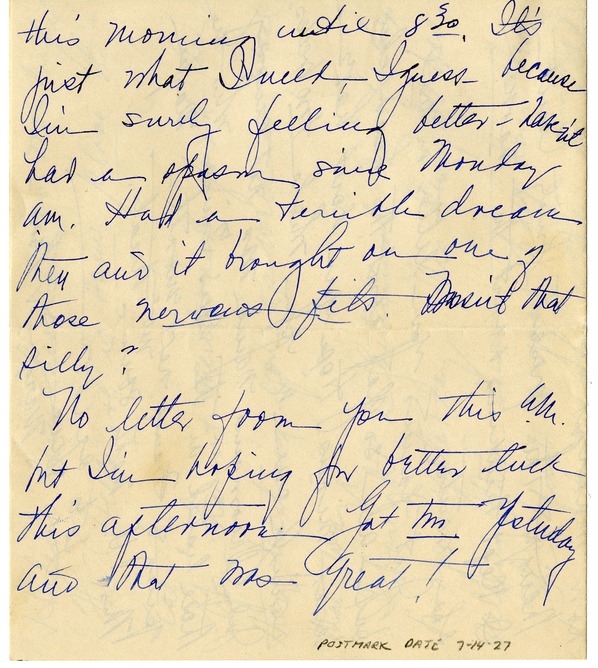 this morning until 8³⁰. It's
just what I need, I guess - because
I'm surely feeling better - haven't
had a spasm since Monday
am. Had a terrible dream
then and it brought on one of
those nervous fits. that
silly?
No letter from you this a.m.
but I'm hoping for better luck
this afternoon. Got Yesterday
and that was great!
POSTMARK DATE 7-14-27